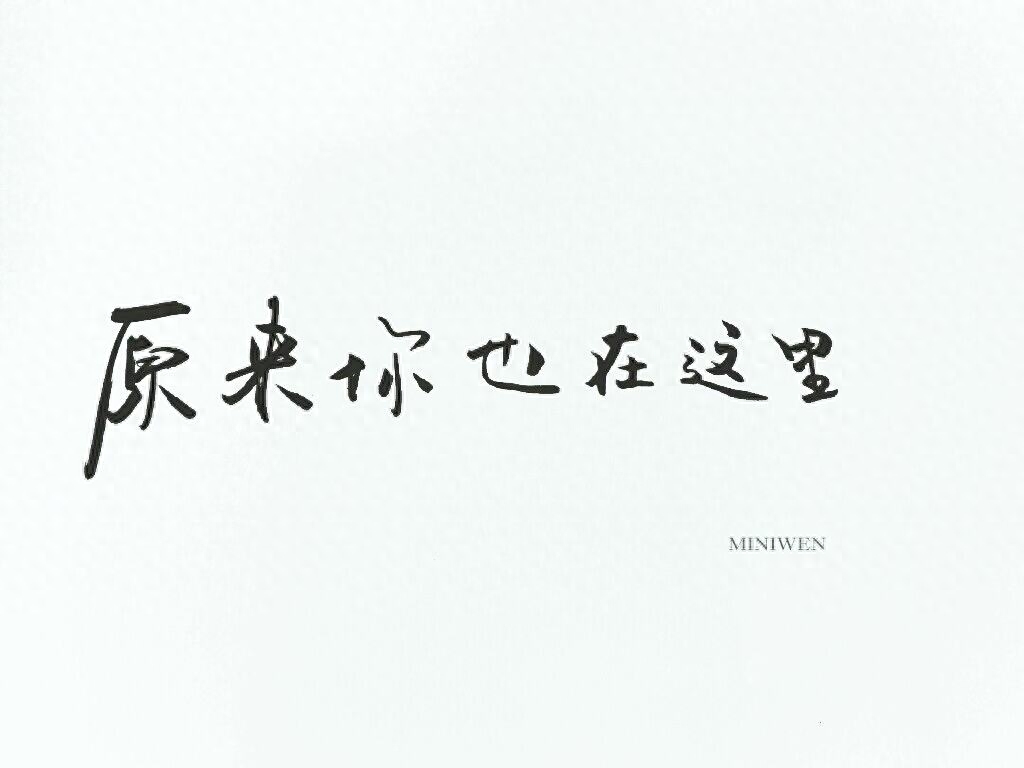 原来你也在这里
MINIWEN